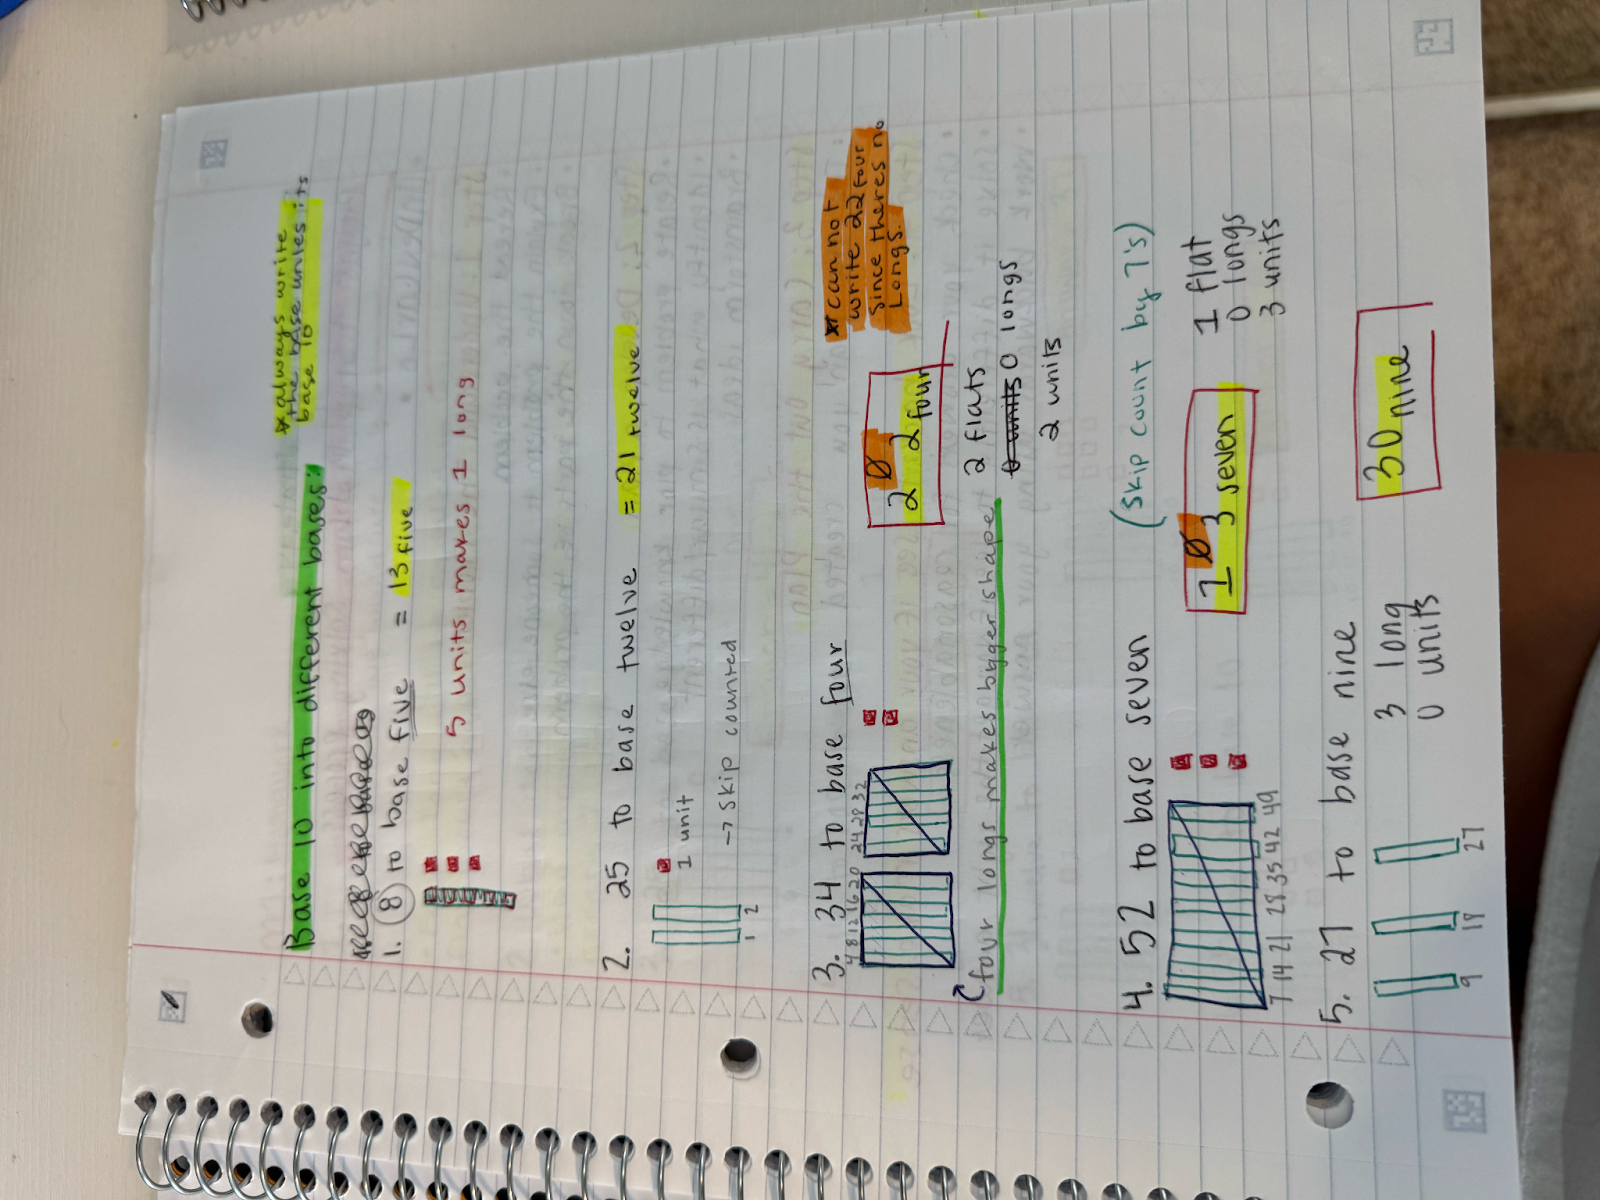 *always write
the base unles its
base 10
Base 10 into different bases:
1. 8 to base five = 13 five
5 units makes 1 long
2. 25 to base twelve = 21 twelve
1 unit
1 2 → skip counted
3. 34 to base four
4 8 12 16 20 24 28 32
2 0 2 four
* can not
write 22 four
since theres no
Longs.
four longs makes bigger shape
2 flats
0 units 0 longs
2 units
4. 52 to base seven (skip count by 7's)
7 14 21 28 35 42 49
1 0 3 seven
1 flat
0 longs
3 units
5. 27 to base nine
9 18 27
3 long
0 units
30 nine